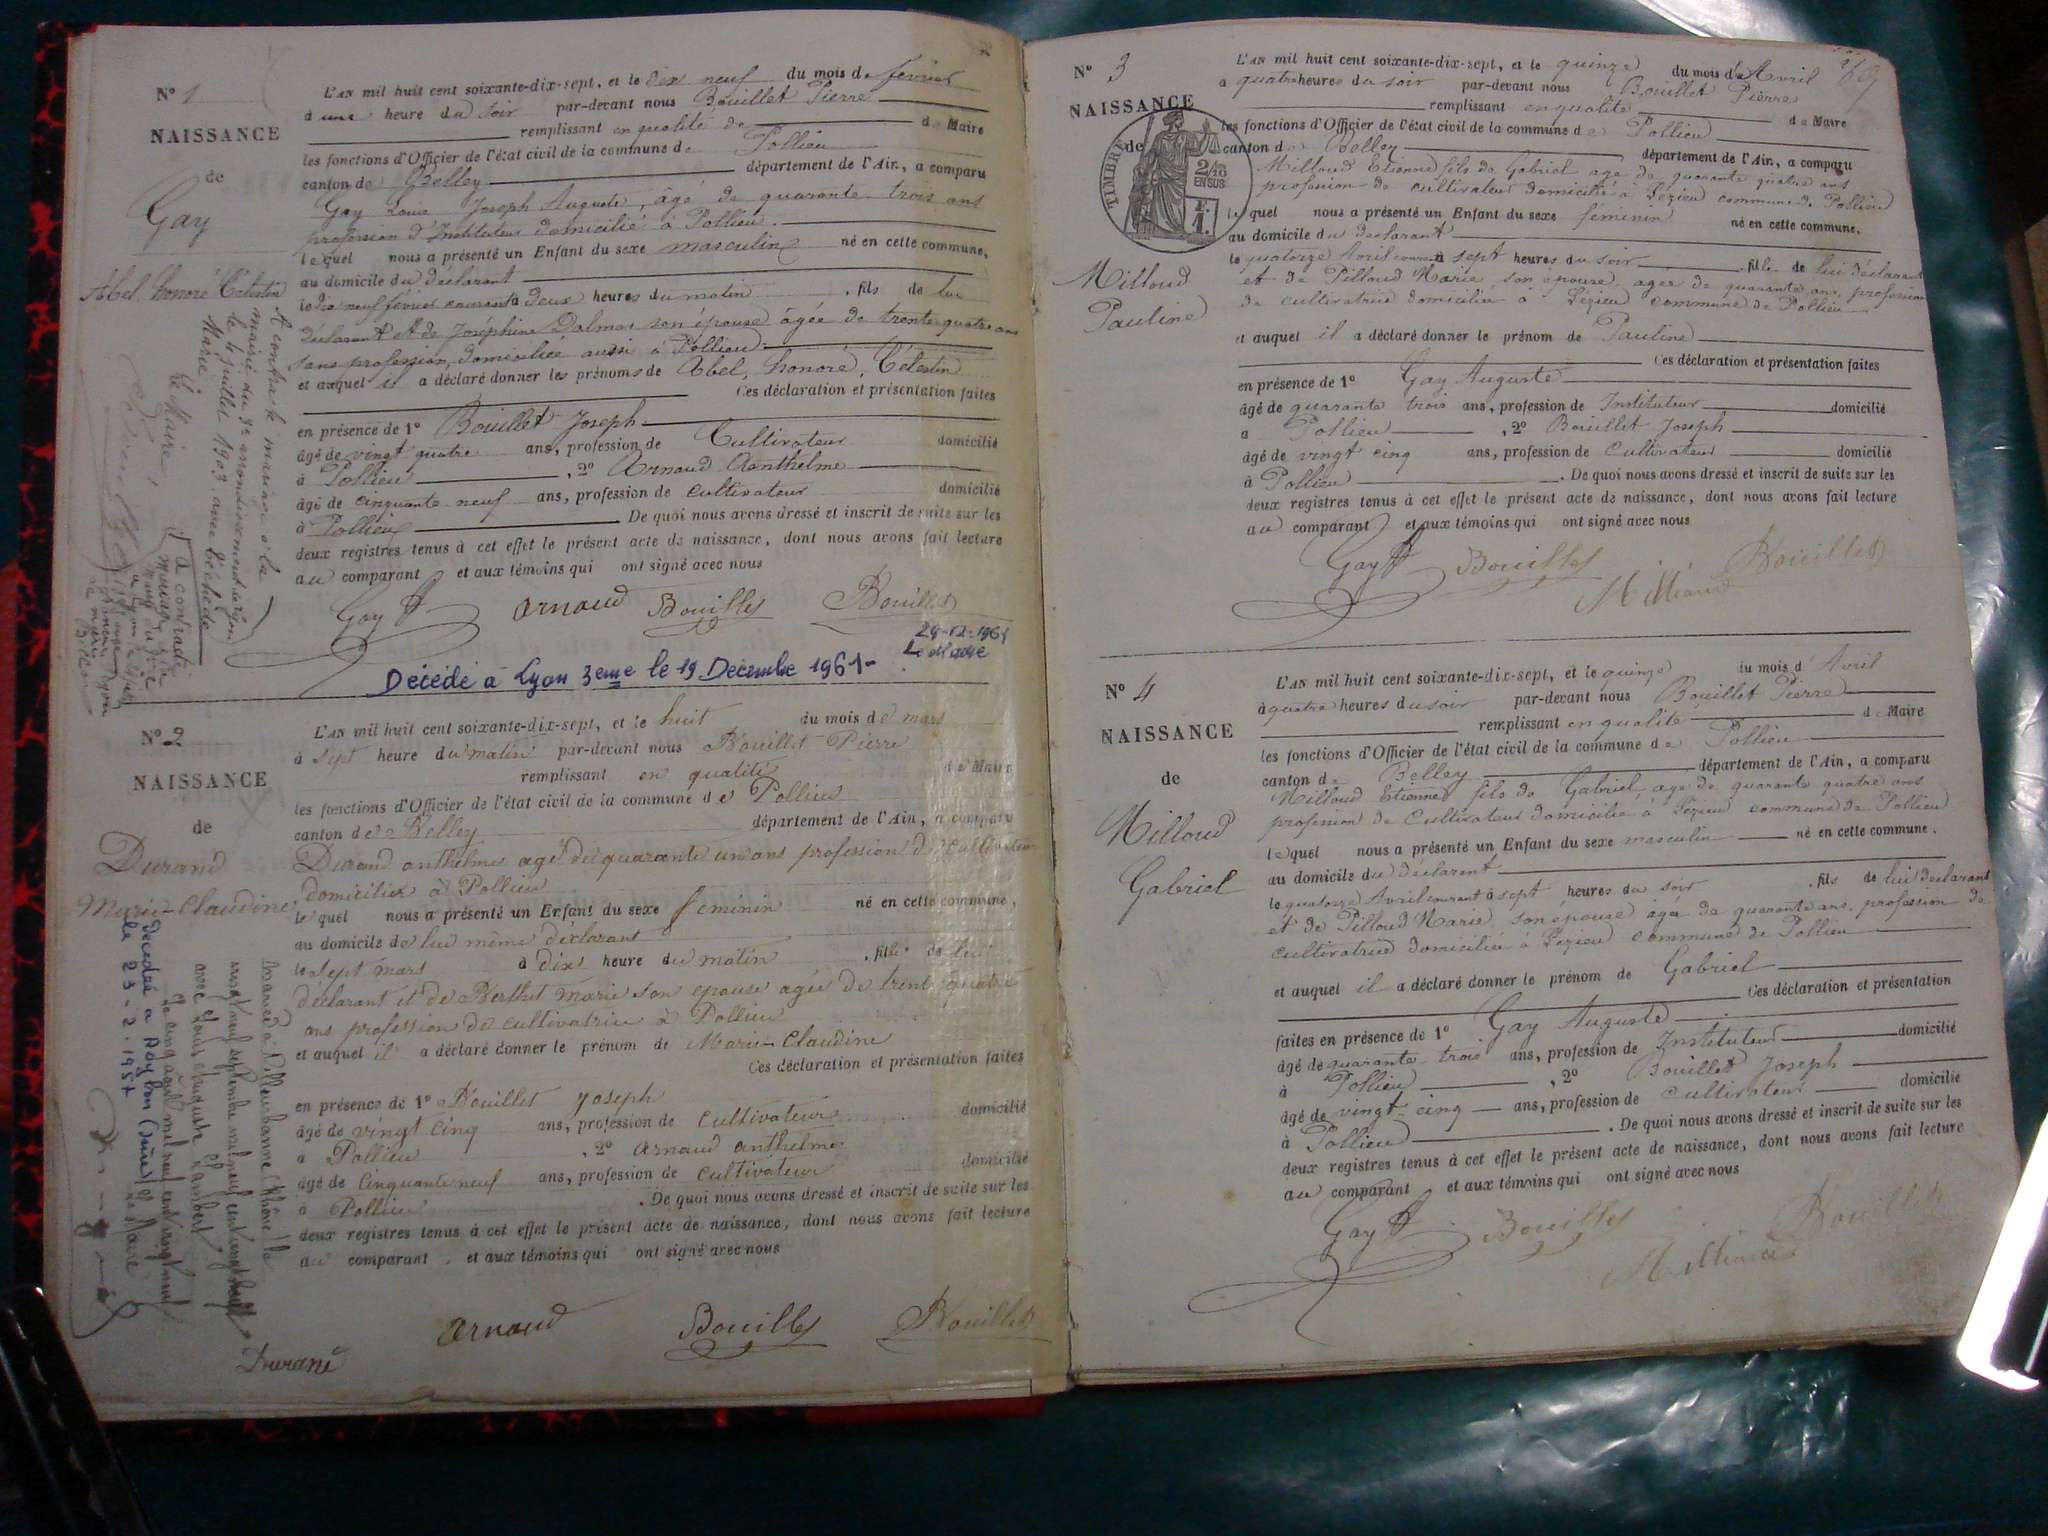 N° 1
NAISSANCE
de
Gay
Abel Honoré Célestin
L'AN mil huit cent soixante-dix-sept, et le dix neuf du mois de février
à une heure du soir par-devant nous Bouillet Pierre
remplissant en qualité de de Maire
les fonctions d'Officier de l'état civil de la commune de Pollieu
canton de Belley département de l'Ain, a comparu
Gay Louis Joseph Auguste, âgé de quarante trois ans
profession d'Instituteur domicilié à Pollieu.
lequel nous a présenté un Enfant du sexe masculin né en cette commune,
au domicile du déclarant
le dix neuf février courant à deux heures du matin, fils de lui
déclarant et de Joséphine Dalmas son épouse âgée de trente quatre ans
sans profession, domiciliée aussi à Pollieu.
et auquel il a déclaré donner les prénoms de Abel, honoré, Célestin
Ces déclaration et présentation faites
en présence de 1° Bouillet Joseph
âgé de vingt quatre ans, profession de Cultivateur domicilié
à Pollieu, 2° Arnaud Anthelme
âgé de cinquante neuf ans, profession de cultivateur domicilié
à Pollieu De quoi nous avons dressé et inscrit de suite sur les
deux registres tenus à cet effet le présent acte de naissance, dont nous avons fait lecture
au comparant et aux témoins qui ont signé avec nous
Gay Arnaud Bouillet Bouillet
29-12-1961
Le Maire
Décédé à Lyon 3eme le 19 Décembre 1961-
A contracté mariage à la
mairie du 3e arrondissement de Lyon
le juillet 1903, avec
Marie
Le Maire,
a contracté
N° 2
NAISSANCE
de
Durand
Marie-Claudine
L'AN mil huit cent soixante-dix-sept, et le huit du mois de mars
à sept heure du matin par-devant nous Bouillet Pierre
remplissant en qualité de Maire
les fonctions d'Officier de l'état civil de la commune de Pollieu
canton de Belley département de l'Ain, a comparu
Durand anthelme agé de quarante un ans profession de cultivateur
domicilié à Pollieu
lequel nous a présenté un Enfant du sexe féminin né en cette commune,
au domicile de lui même déclarant
le sept mars à dix heure du matin, fille de lui
déclarant et de Berthet Marie son epouse agée de trente quatre
ans profession de cultivatrice à Pollieu
et auquel il a déclaré donner le prénom de Marie-Claudine
Ces déclaration et présentation faites
en présence de 1° Bouillet Joseph
âgé de vingt cinq ans, profession de cultivateur domicilié
à Pollieu, 2° arnaud anthelme
âgé de cinquante neuf ans, profession de cultivateur domicilié
à Pollieu. De quoi nous avons dressé et inscrit de suite sur les
deux registres tenus à cet effet le présent acte de naissance, dont nous avons fait lecture
au comparant, et aux témoins qui ont signé avec nous
Arnaud Bouillet Bouillet
Durand
Mariée à Villeurbanne (Rhône) le
vingt neuf septembre mil neuf cent vingt huit
avec Louis Auguste Lambert
Le cinq août mil neuf cent vingt neuf
décédée à
le 23-2-1957
Le Maire
N° 3
NAISSANCE
de
TIMBRE
2/10 EN SUS
Milloud
Pauline
269
L'AN mil huit cent soixante-dix-sept, et le quinze du mois d'Avril
à quatre heures du soir par-devant nous Bouillet Pierre
remplissant en qualité de Maire
les fonctions d'Officier de l'état civil de la commune de Pollieu
canton de Belley département de l'Ain, a comparu
Milloud Etienne fils de Gabriel agé de quarante quatre ans
profession de cultivateur domicilié à Lézieu commune de Pollieu
lequel nous a présenté un Enfant du sexe féminin né en cette commune,
au domicile du déclarant
le quatorze Avril courant à sept heures du soir, fille de lui déclarant
et de Pilloud Marie, son épouse, agée de quarante ans, profession
de cultivatrice domiciliée à Lézieu commune de Pollieu
et auquel il a déclaré donner le prénom de Pauline
Ces déclaration et présentation faites
en présence de 1° Gay Auguste
âgé de quarante trois ans, profession de Instituteur domicilié
à Pollieu, 2° Bouillet Joseph
âgé de vingt cinq ans, profession de Cultivateur domicilié
à Pollieu. De quoi nous avons dressé et inscrit de suite sur les
deux registres tenus à cet effet le présent acte de naissance, dont nous avons fait lecture
au comparant et aux témoins qui ont signé avec nous
Gay Bouillet Bouillet
Milliand
N° 4
NAISSANCE
de
Milloud
Gabriel
L'AN mil huit cent soixante-dix-sept, et le quinze du mois d'Avril
à quatre heures du soir par-devant nous Bouillet Pierre
remplissant en qualité de Maire
les fonctions d'Officier de l'état civil de la commune de Pollieu
canton de Belley département de l'Ain, a comparu
Milloud Etienne fils de Gabriel, agé de quarante quatre ans
profession de Cultivateur domicilié à Lézieu commune de Pollieu
lequel nous a présenté un Enfant du sexe masculin né en cette commune,
au domicile du déclarant
le quatorze Avril courant à sept heures du soir, fils de lui déclarant
et de Pilloud Marie, son épouse âgée de quarante ans, profession de
cultivatrice domiciliée à Lézieu commune de Pollieu
et auquel il a déclaré donner le prénom de Gabriel
Ces déclaration et présentation
faites en présence de 1° Gay Auguste
âgé de quarante trois ans, profession de Instituteur domicilié
à Pollieu, 2° Bouillet Joseph
âgé de vingt cinq ans, profession de cultivateur domicilié
à Pollieu. De quoi nous avons dressé et inscrit de suite sur les
deux registres tenus à cet effet le présent acte de naissance, dont nous avons fait lecture
au comparant et aux témoins qui ont signé avec nous
Gay Bouillet Bouillet
Milliand